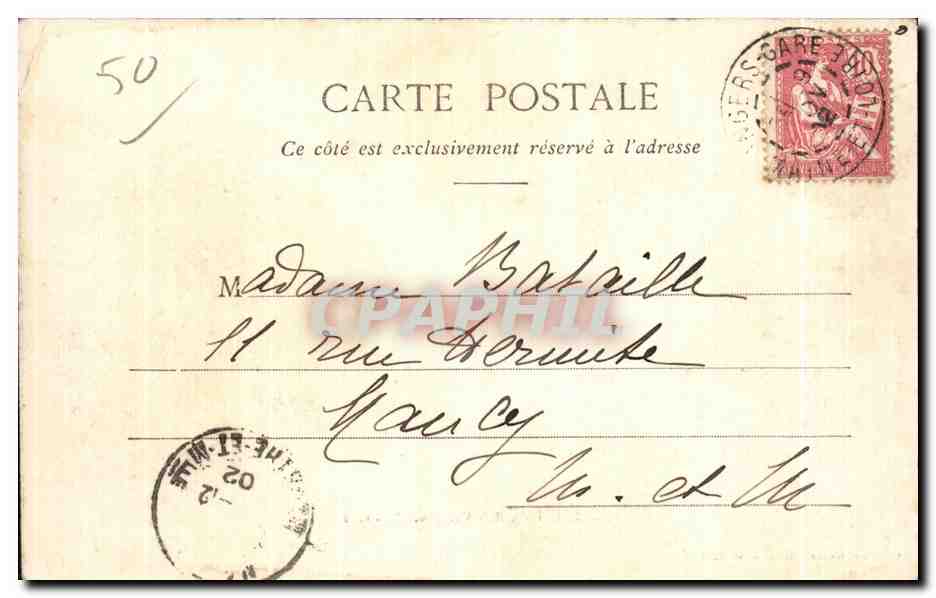 50
CARTE POSTALE
Ce côté est exclusivement réservé à l'adresse
ANGERS-GARE
MAINE ET LOIRE
Madame Bataille
CPAPHIL
11 rue Hermite
Nancy
M. et M
MEURTHE-ET-MLLE
-12
02